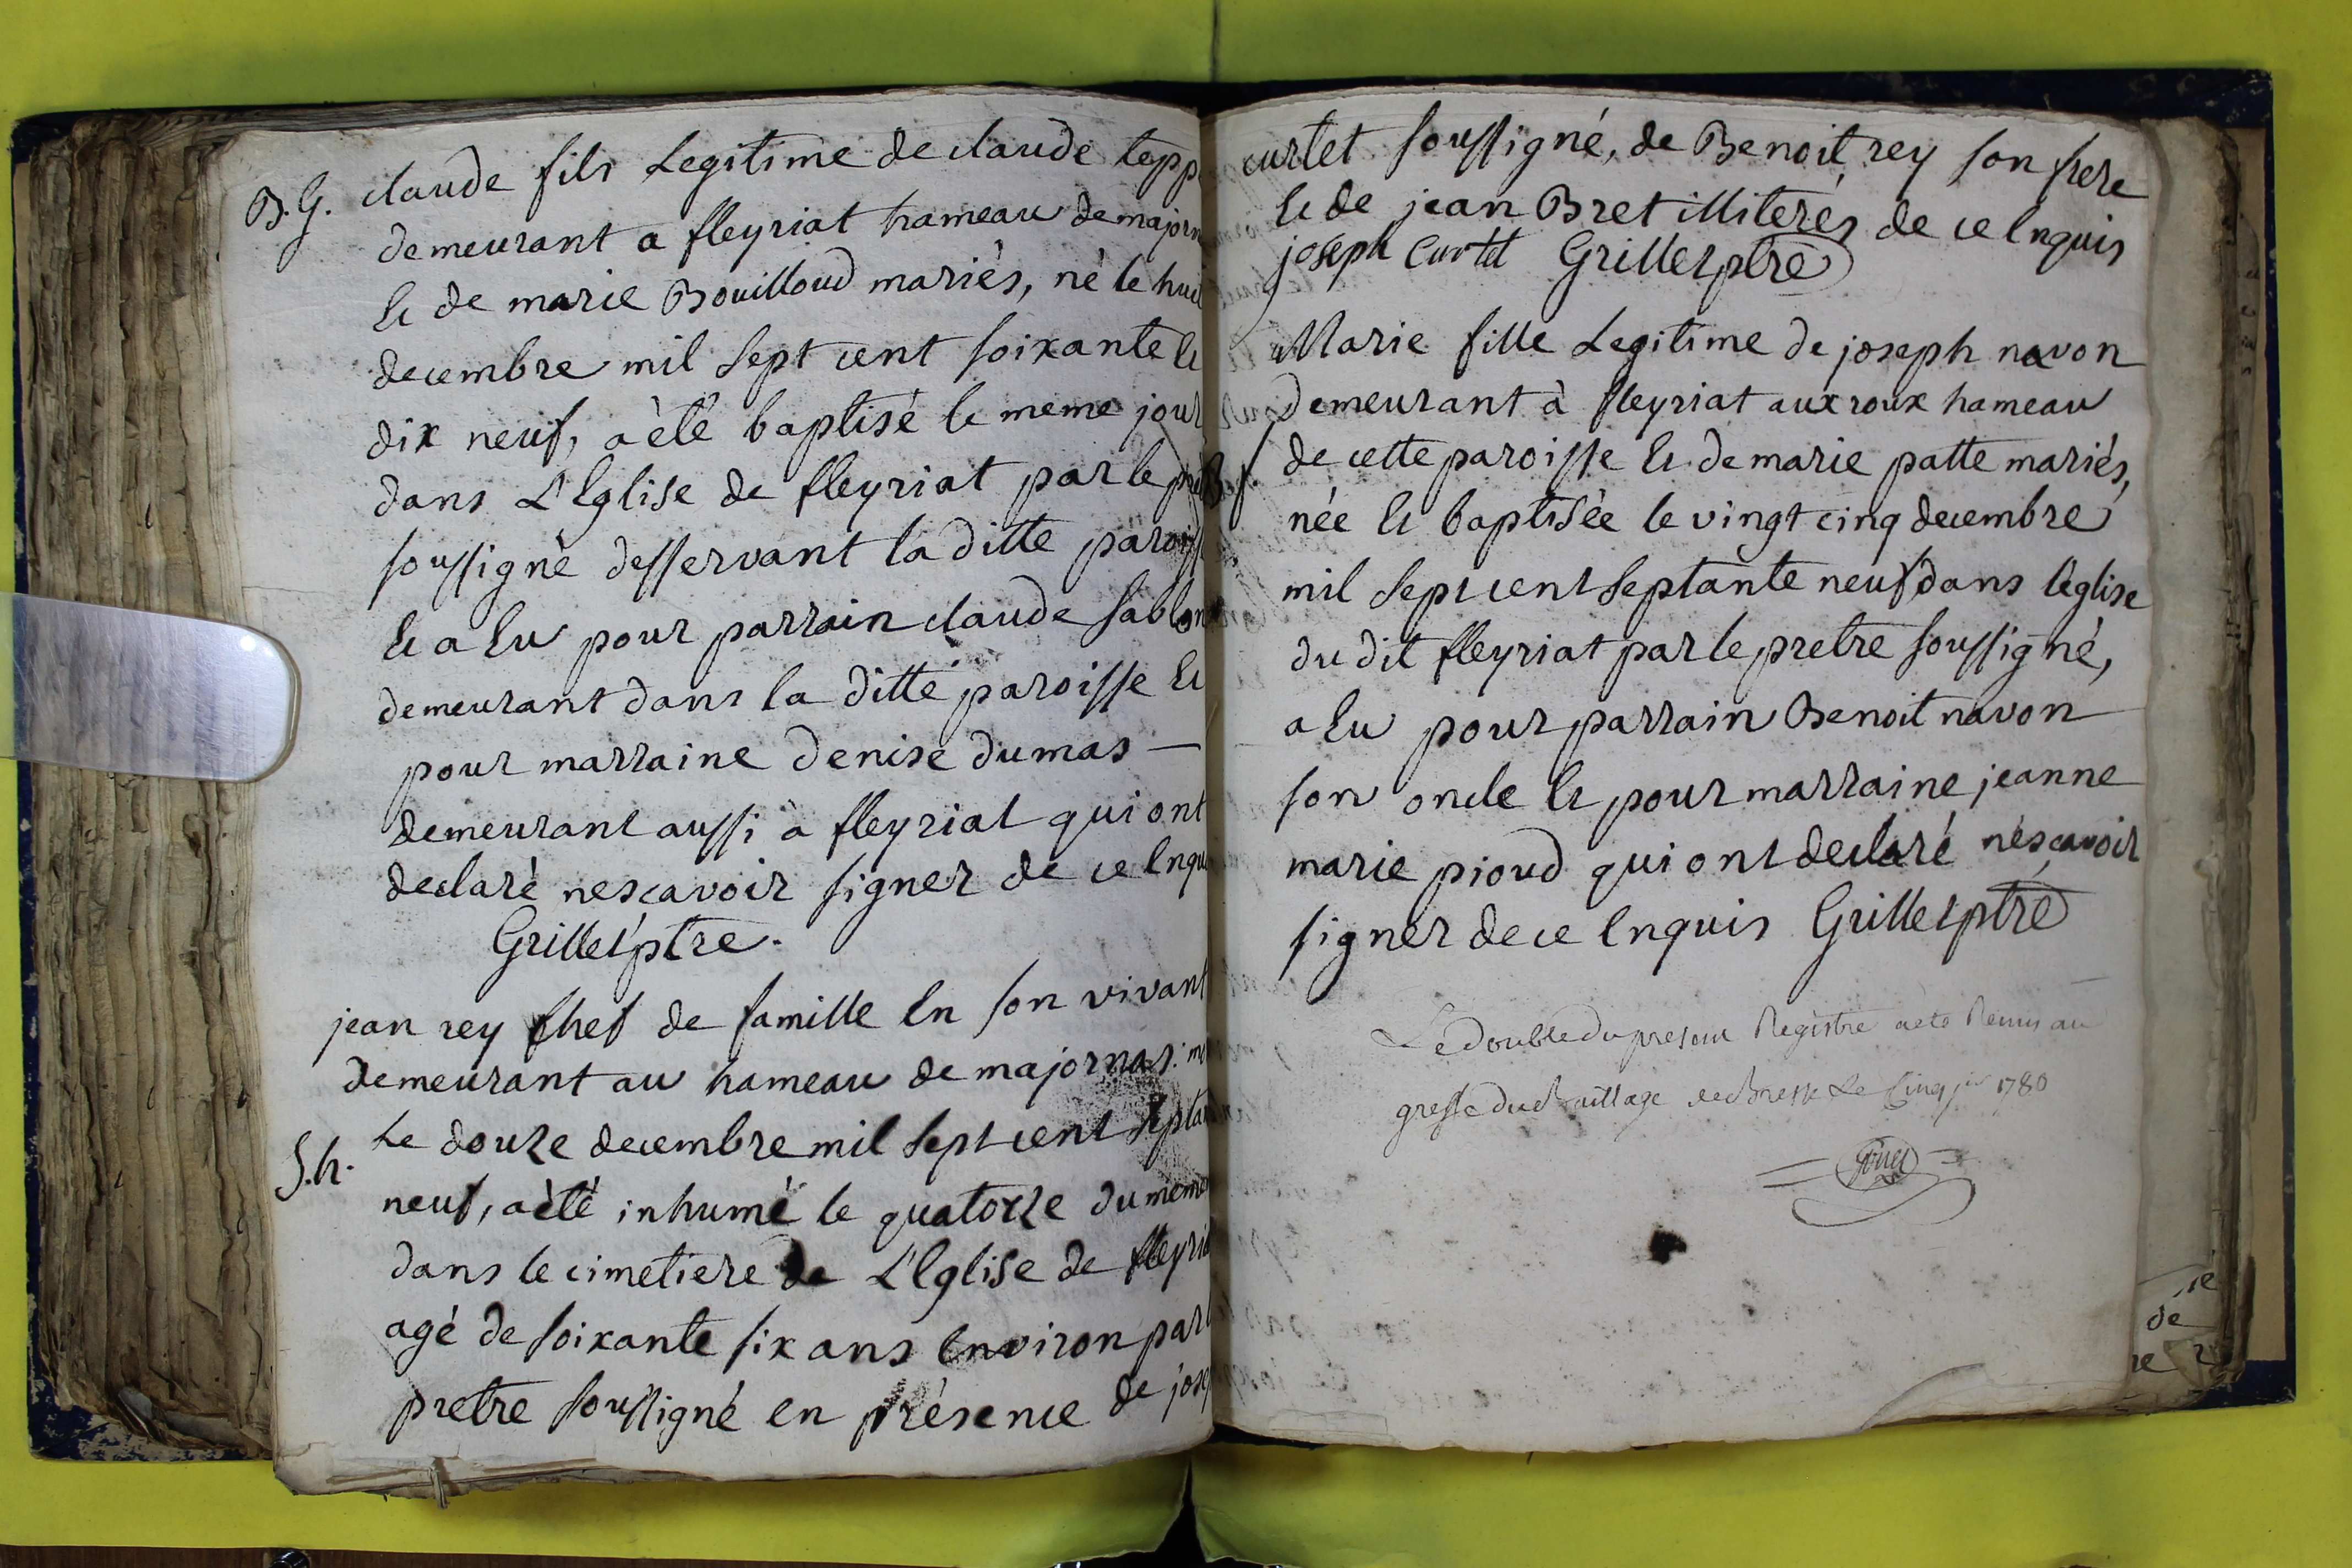 B.G. claude fils Legitime de claude tepp
demeurant a fleyriat hameau de majorn
Et de marie Bouilloud mariés, né le hui
decembre mil sept cent soixante Et
dix neuf, a èté baptisé le meme jour
dans L'Eglise de fleyriat par le
soussigné desservant la ditte paroiss
Et a Eu pour parrain claude sablon
demeurant dans la ditte paroisse Et
pour marraine denise dumas —
demeurant aussi à fleyriat qui ont
declaré nescavoir signer de ce Enqu
Grillet ptre.
jean rey chef de famille En son vivant
demeurant au hameau de majornas: m
S.h. Le douze decembre mil sept cent septan
neuf, a èté inhumé le quatorze du meme
dans le cimetiere de L'Eglise de fleyria
agé de soixante six ans Environ par l
pretre soussigné en présence de jose
curtet soussigné, de Benoit rey son frere
Et de jean Bret illiterés de ce Enquis
joseph Curtet Grillet ptre
Marie fille Legitime de joseph navon
demeurant à fleyriat aux roux hameau
B.f. de cette paroisse Et de marie patte mariés,
née Et baptisée le vingt cinq decembre
mil sept cent septante neuf dans l'église
du dit fleyriat par le pretre soussigné,
a Eu pour parrain Benoit navon
son oncle Et pour marraine jeanne
marie pioud qui ont declaré néscavoir
signer de ce Enquis Grillet ptre
Le double du present Registre a eté Remis au
greffe du Bailliage de Bresse Le Cinq jer 1780